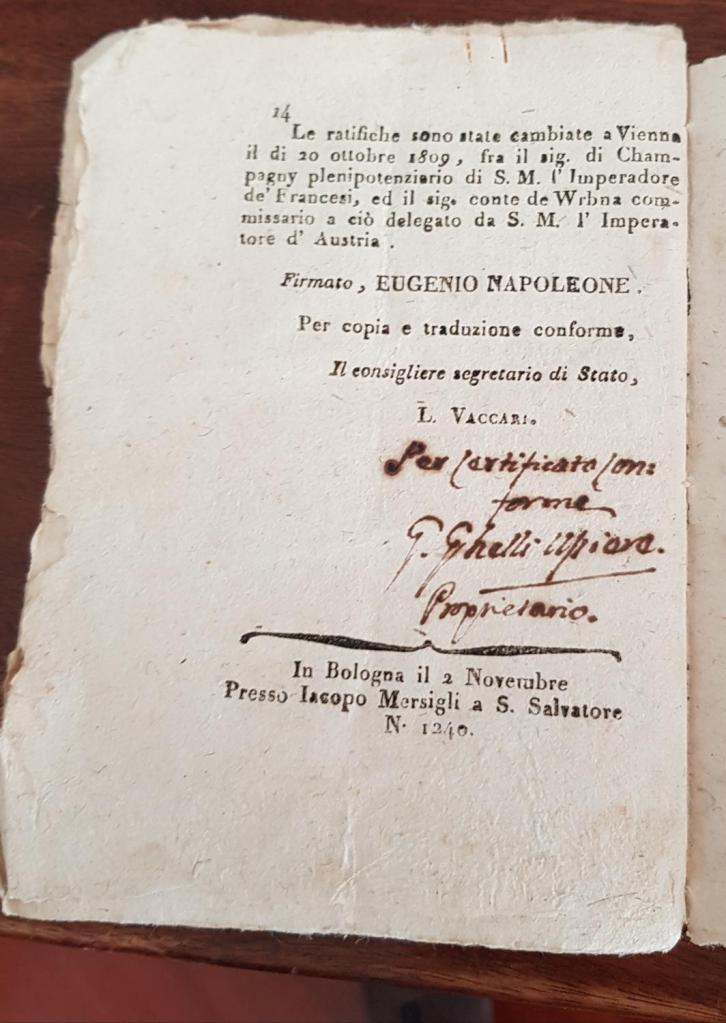 14
Le ratifiche sono state cambiate a Vienna
il di 20 ottobre 1809, fra il sig. di Cham-
pagny plenipotenziario di S. M. l' Imperadore
de' Francesi, ed il sig. conte de Wrbna com-
missario a ciò delegato da S. M. l' Impera-
tore d' Austria.
Firmato, EUGENIO NAPOLEONE.
Per copia e traduzione conforme,
Il consigliere segretario di Stato,
L. VACCARI.
Per Certificato Con:
forme
G. Ghelli
Proprietario.
In Bologna il 2 Novembre
Presso Iacopo Marsigli a S. Salvatore
N. 1240.